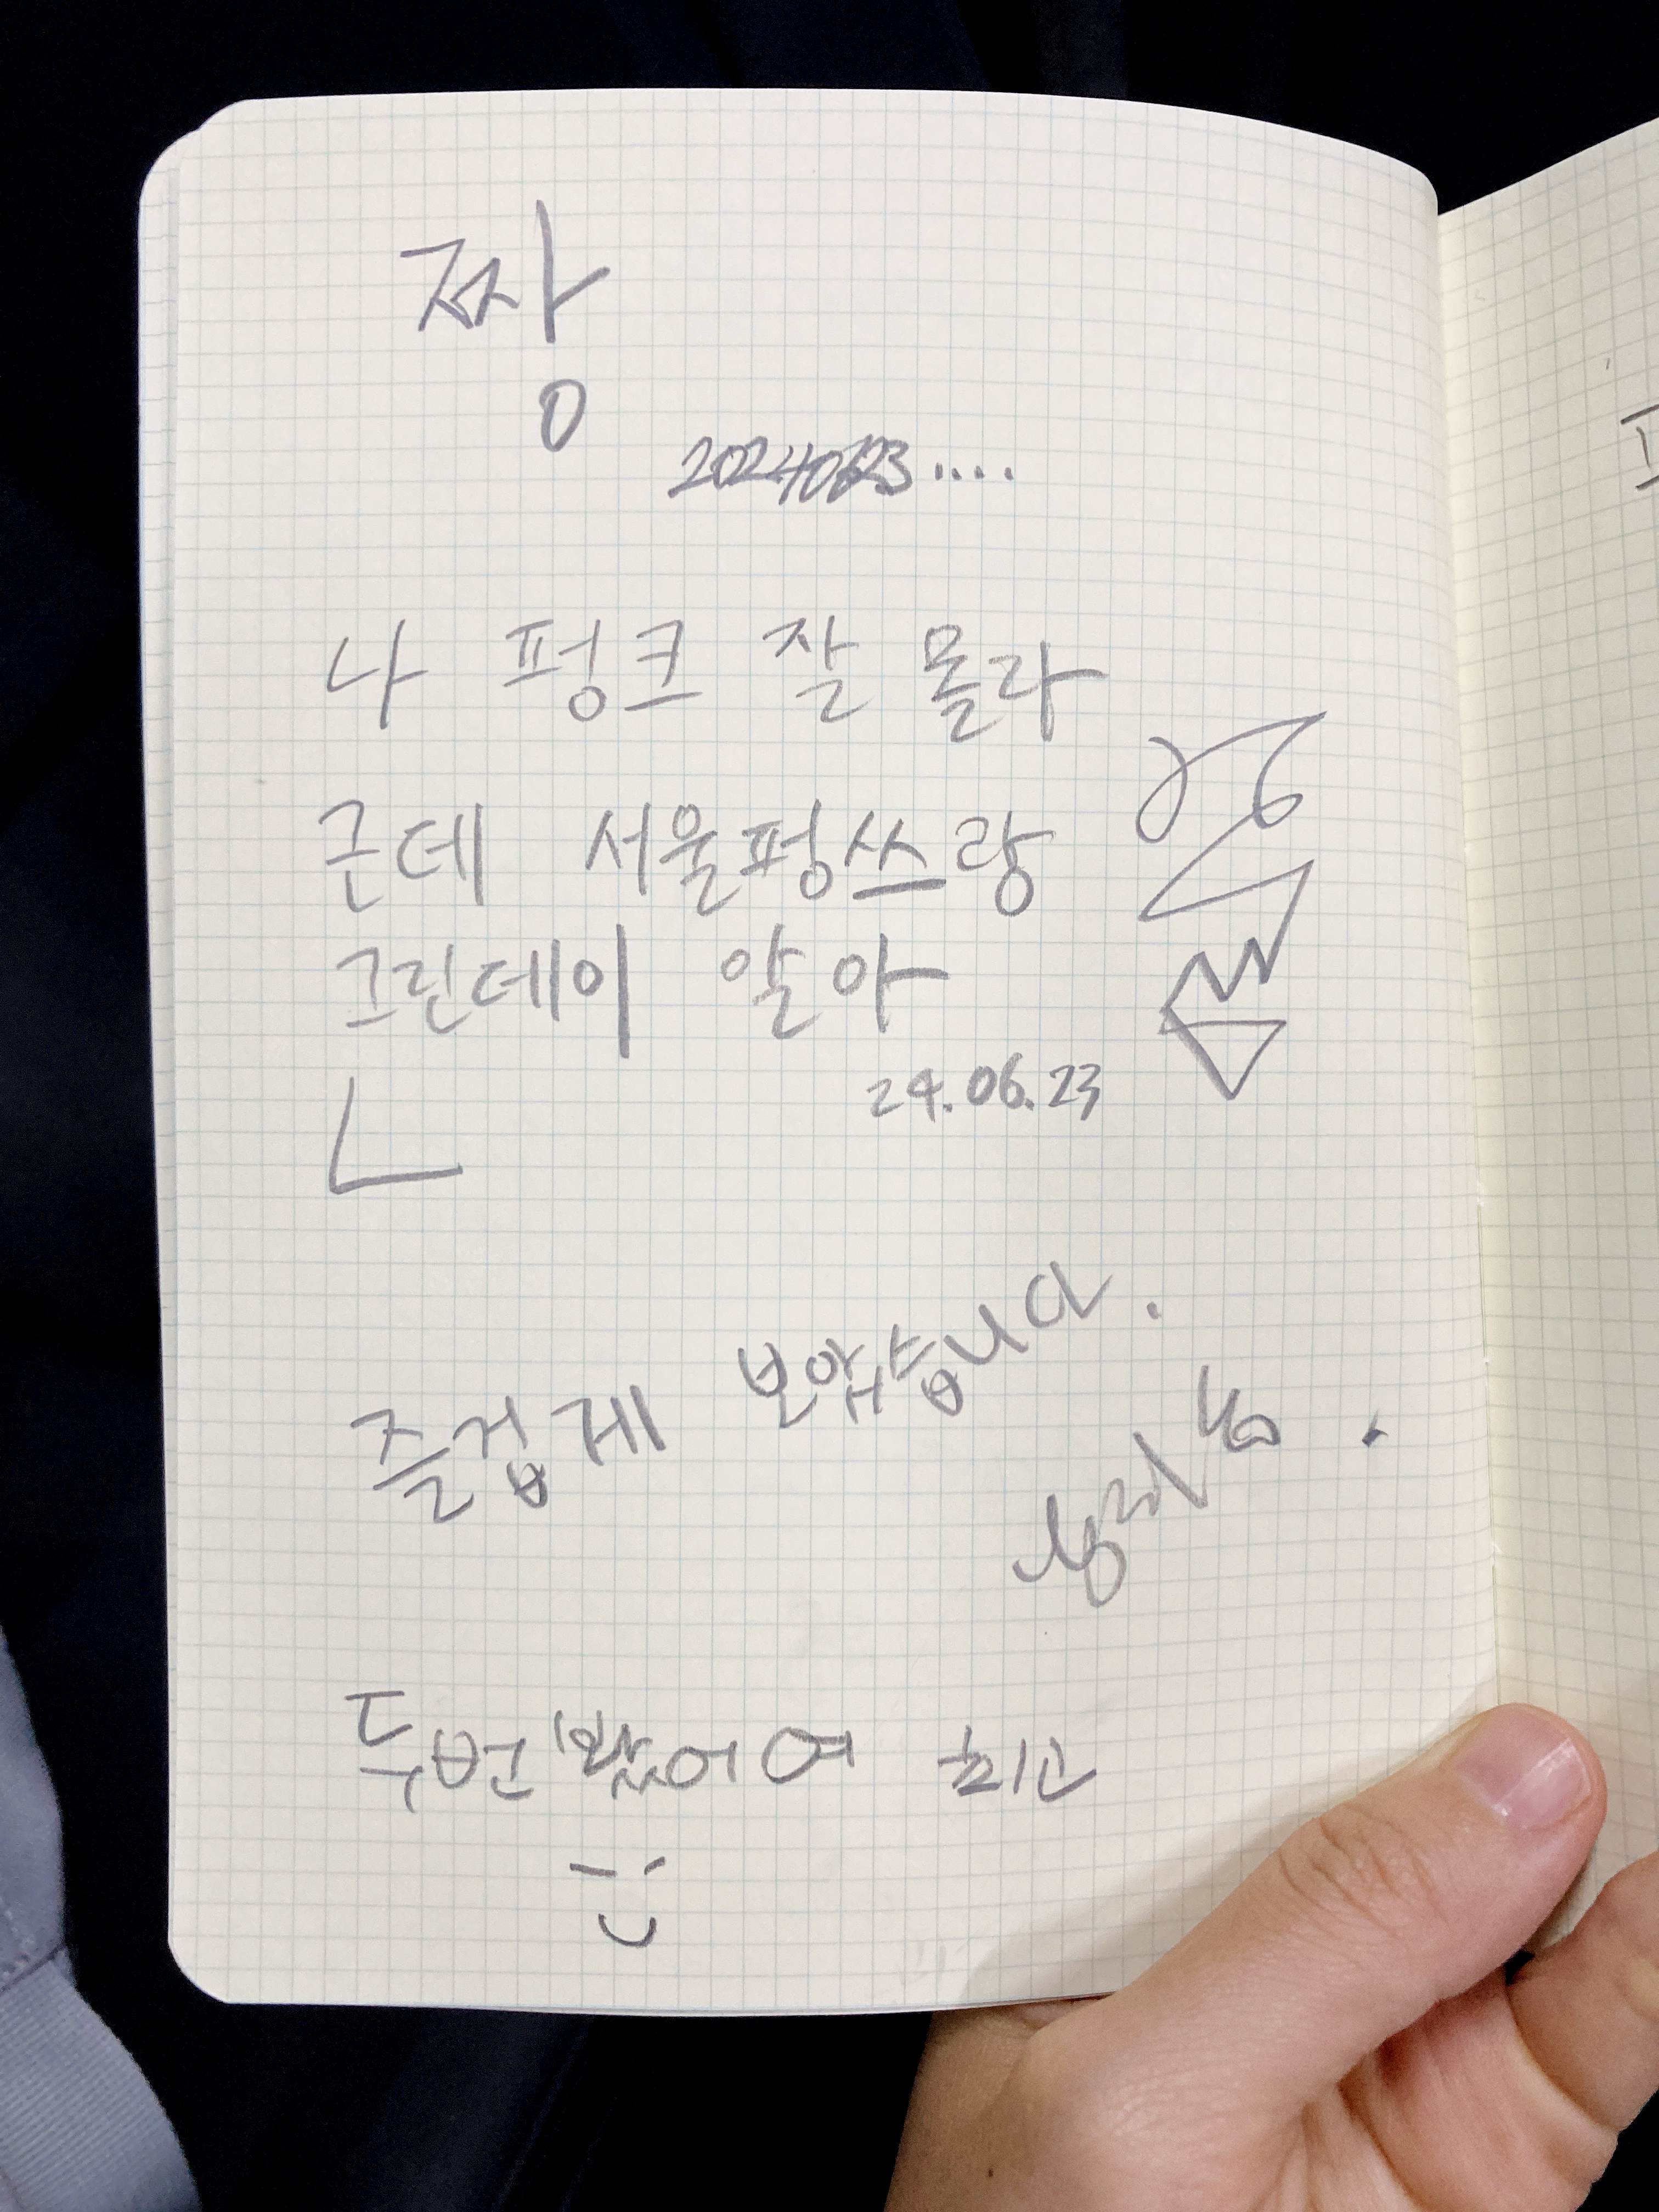 짱
20240623....
나 펑크 잘 몰라
근데 서울펑쓰랑
그린데이 알아
24.06.23
즐겁게 보았습니다.
두번 봤어여 최고